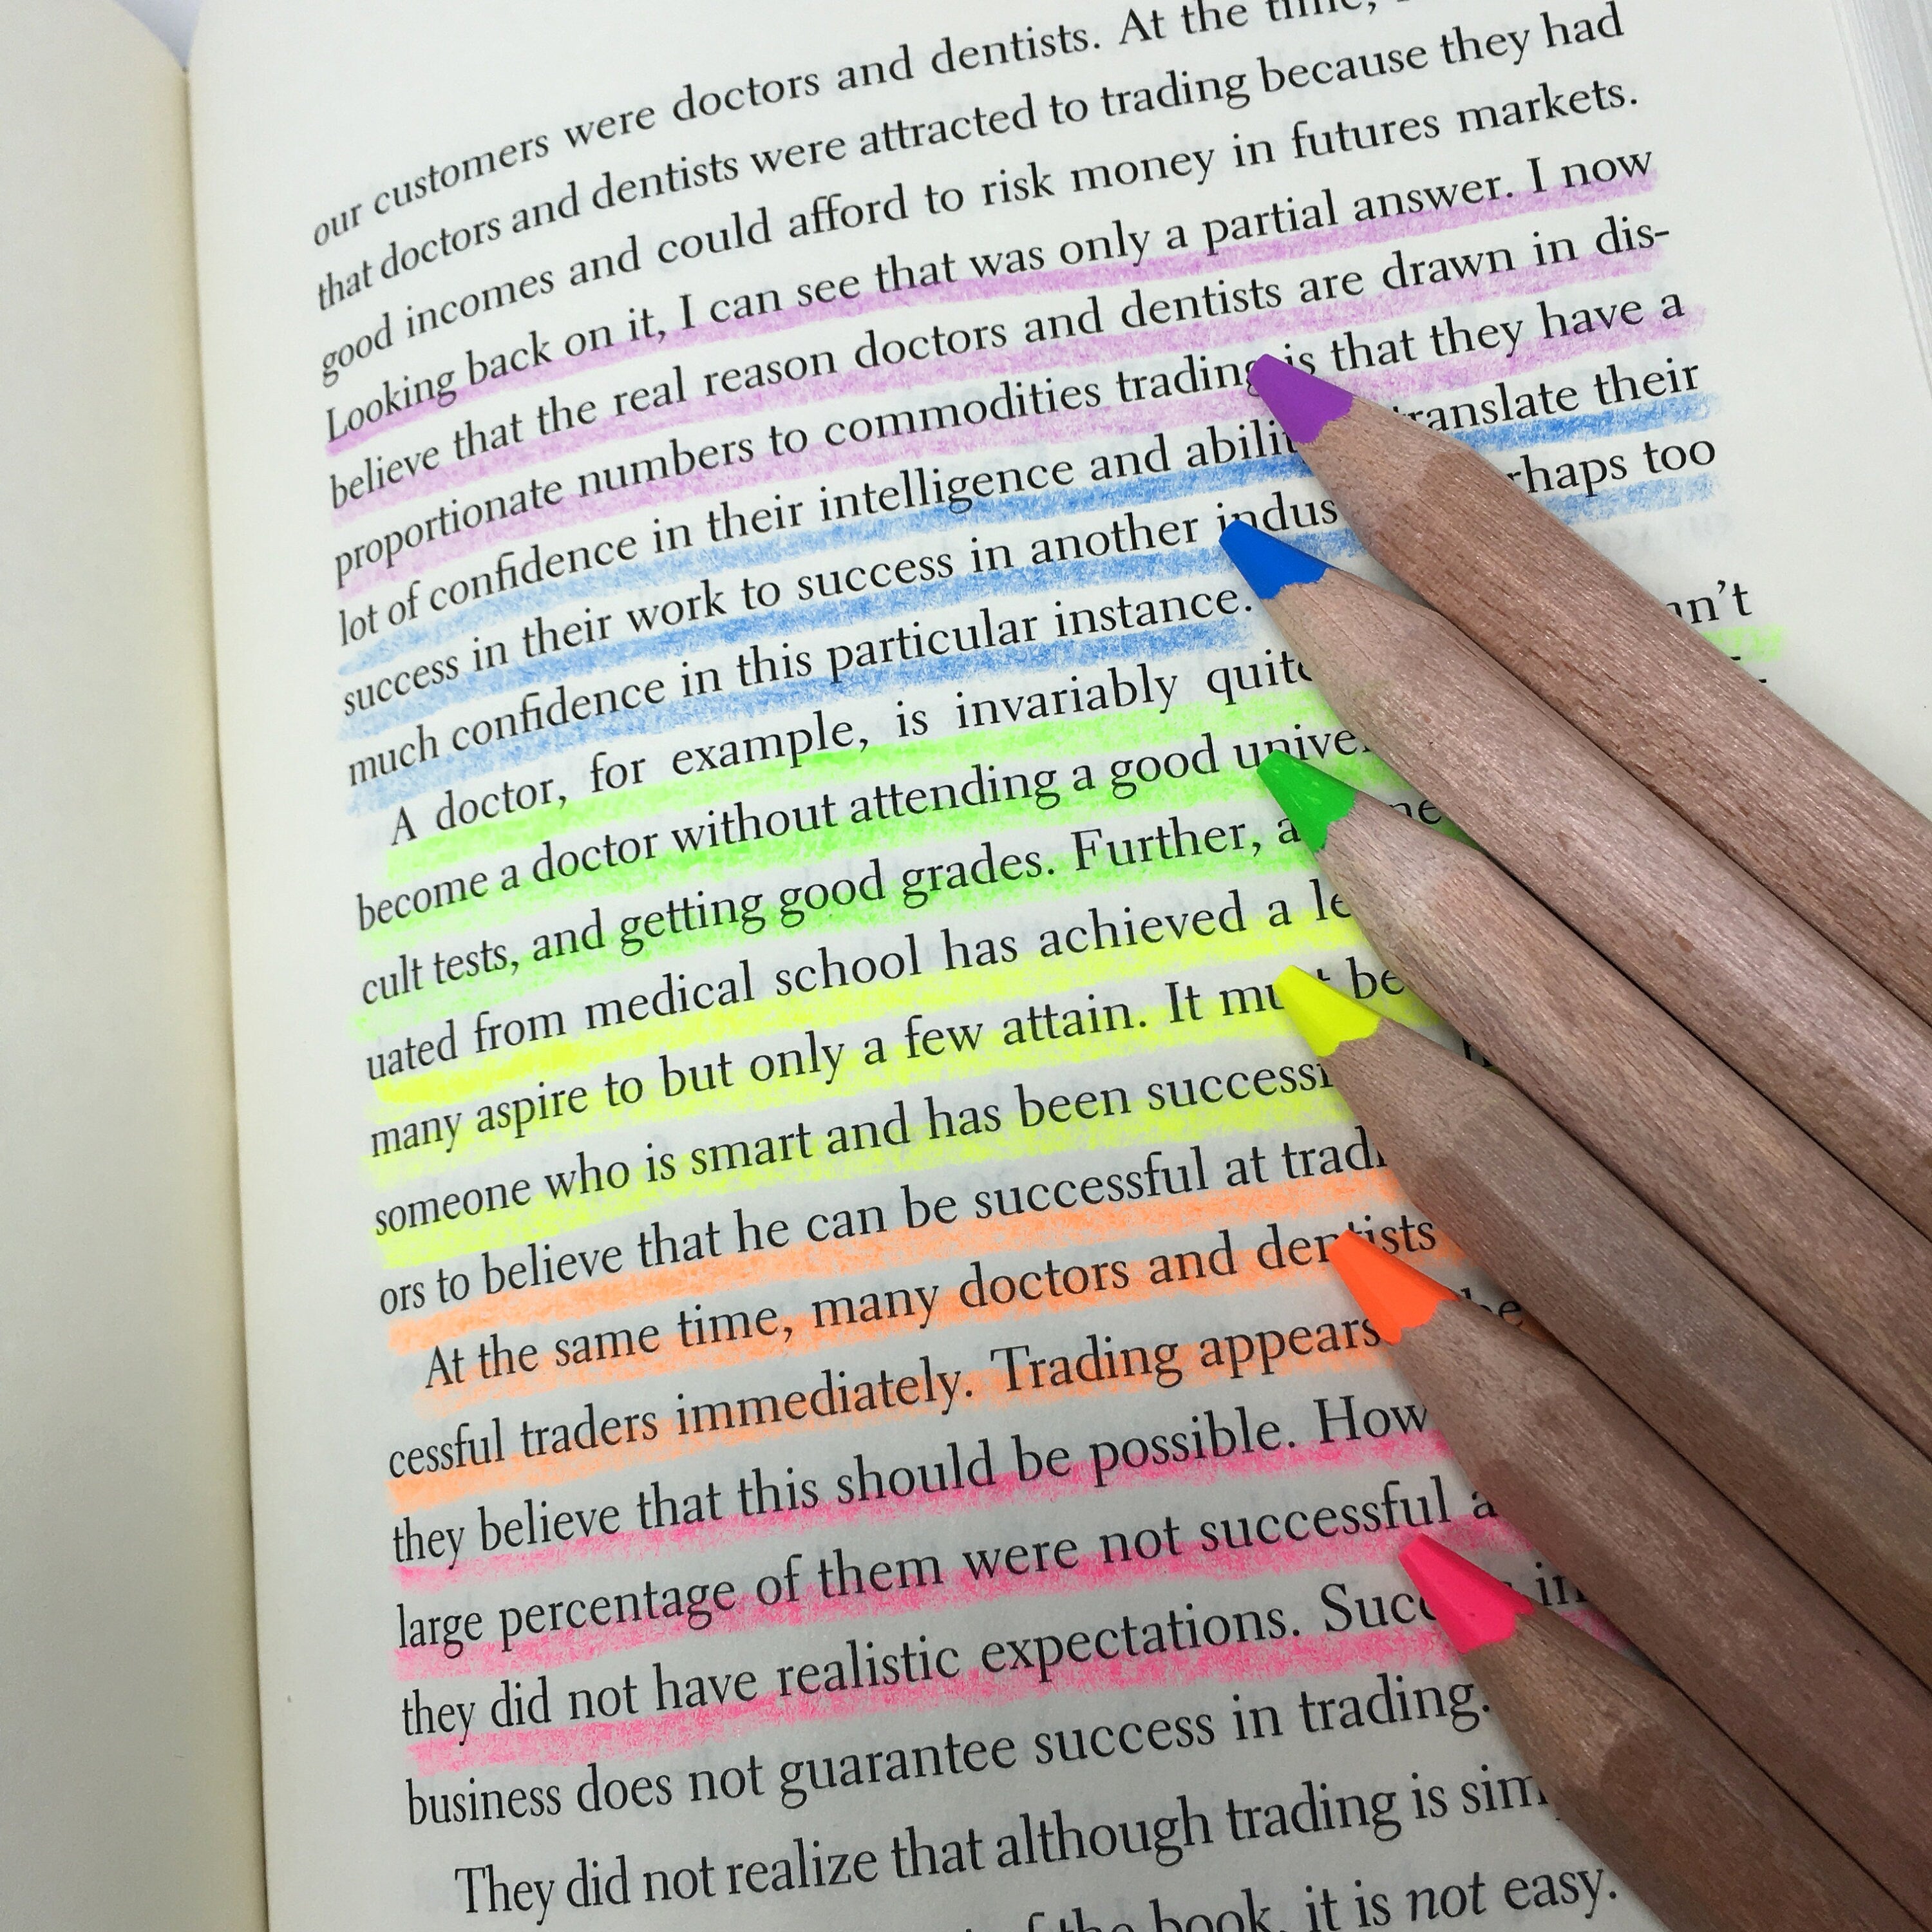 our customers were doctors and dentists. At the time,
that doctors and dentists were attracted to trading because they had
good incomes and could afford to risk money in futures markets.
Looking back on it, I can see that was only a partial answer. I now
believe that the real reason doctors and dentists are drawn in dis-
proportionate numbers to commodities trading is that they have a
lot of confidence in their intelligence and translate their
success in their work to success in another too
much confidence in this particular instance.
A doctor, for example, is invariably
become a doctor without attending a good
cult tests, and getting good grades. Further,
uated from medical school has achieved a
many aspire to but only a few attain. It be
someone who is smart and has been
ors to believe that he can be successful at
At the same time, many doctors and dentists
cessful traders immediately. Trading appears
they believe that this should be possible.
large percentage of them were not successful
they did not have realistic expectations.
business does not guarantee success in trading.
They did not realize that although trading is
the book, it is not easy.